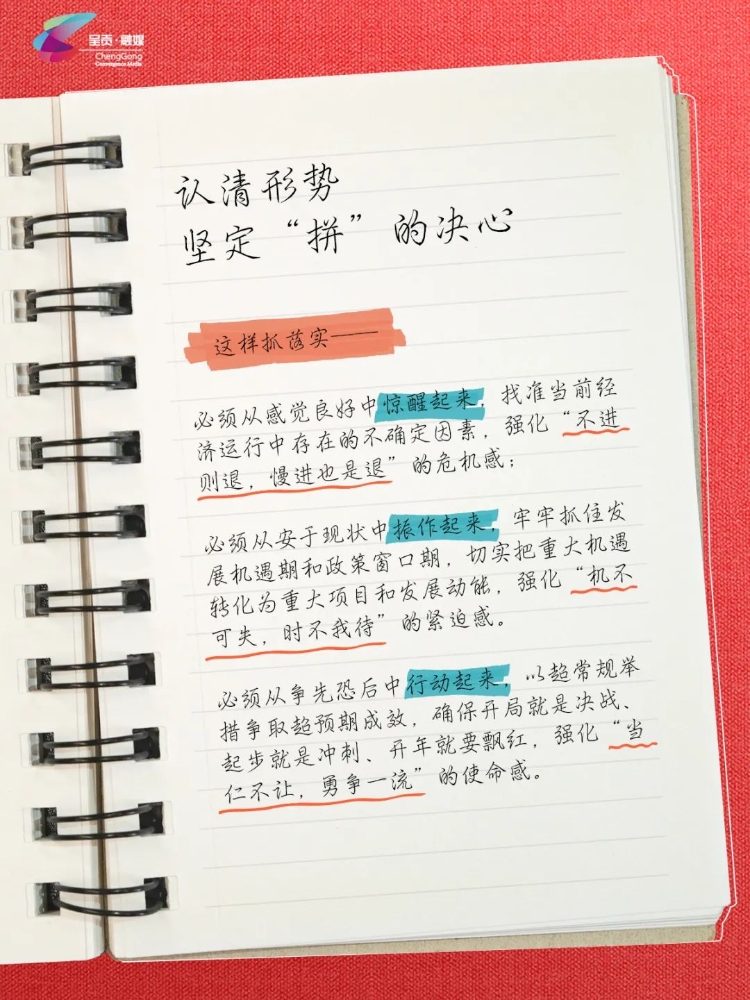 呈贡·融媒
ChengGong
Convergence Media
认清形势
坚定“拼”的决心
这样抓落实——
必须从感觉良好中惊醒起来，找准当前经
济运行中存在的不确定因素，强化“不进
则退，慢进也是退”的危机感；
必须从安于现状中振作起来，牢牢抓住发
展机遇期和政策窗口期，切实把重大机遇
转化为重大项目和发展动能，强化“机不
可失，时不我待”的紧迫感。
必须从争先恐后中行动起来，以超常规举
措争取超预期成效，确保开局就是决战、
起步就是冲刺、开年就要飘红，强化“当
仁不让，勇争一流”的使命感。